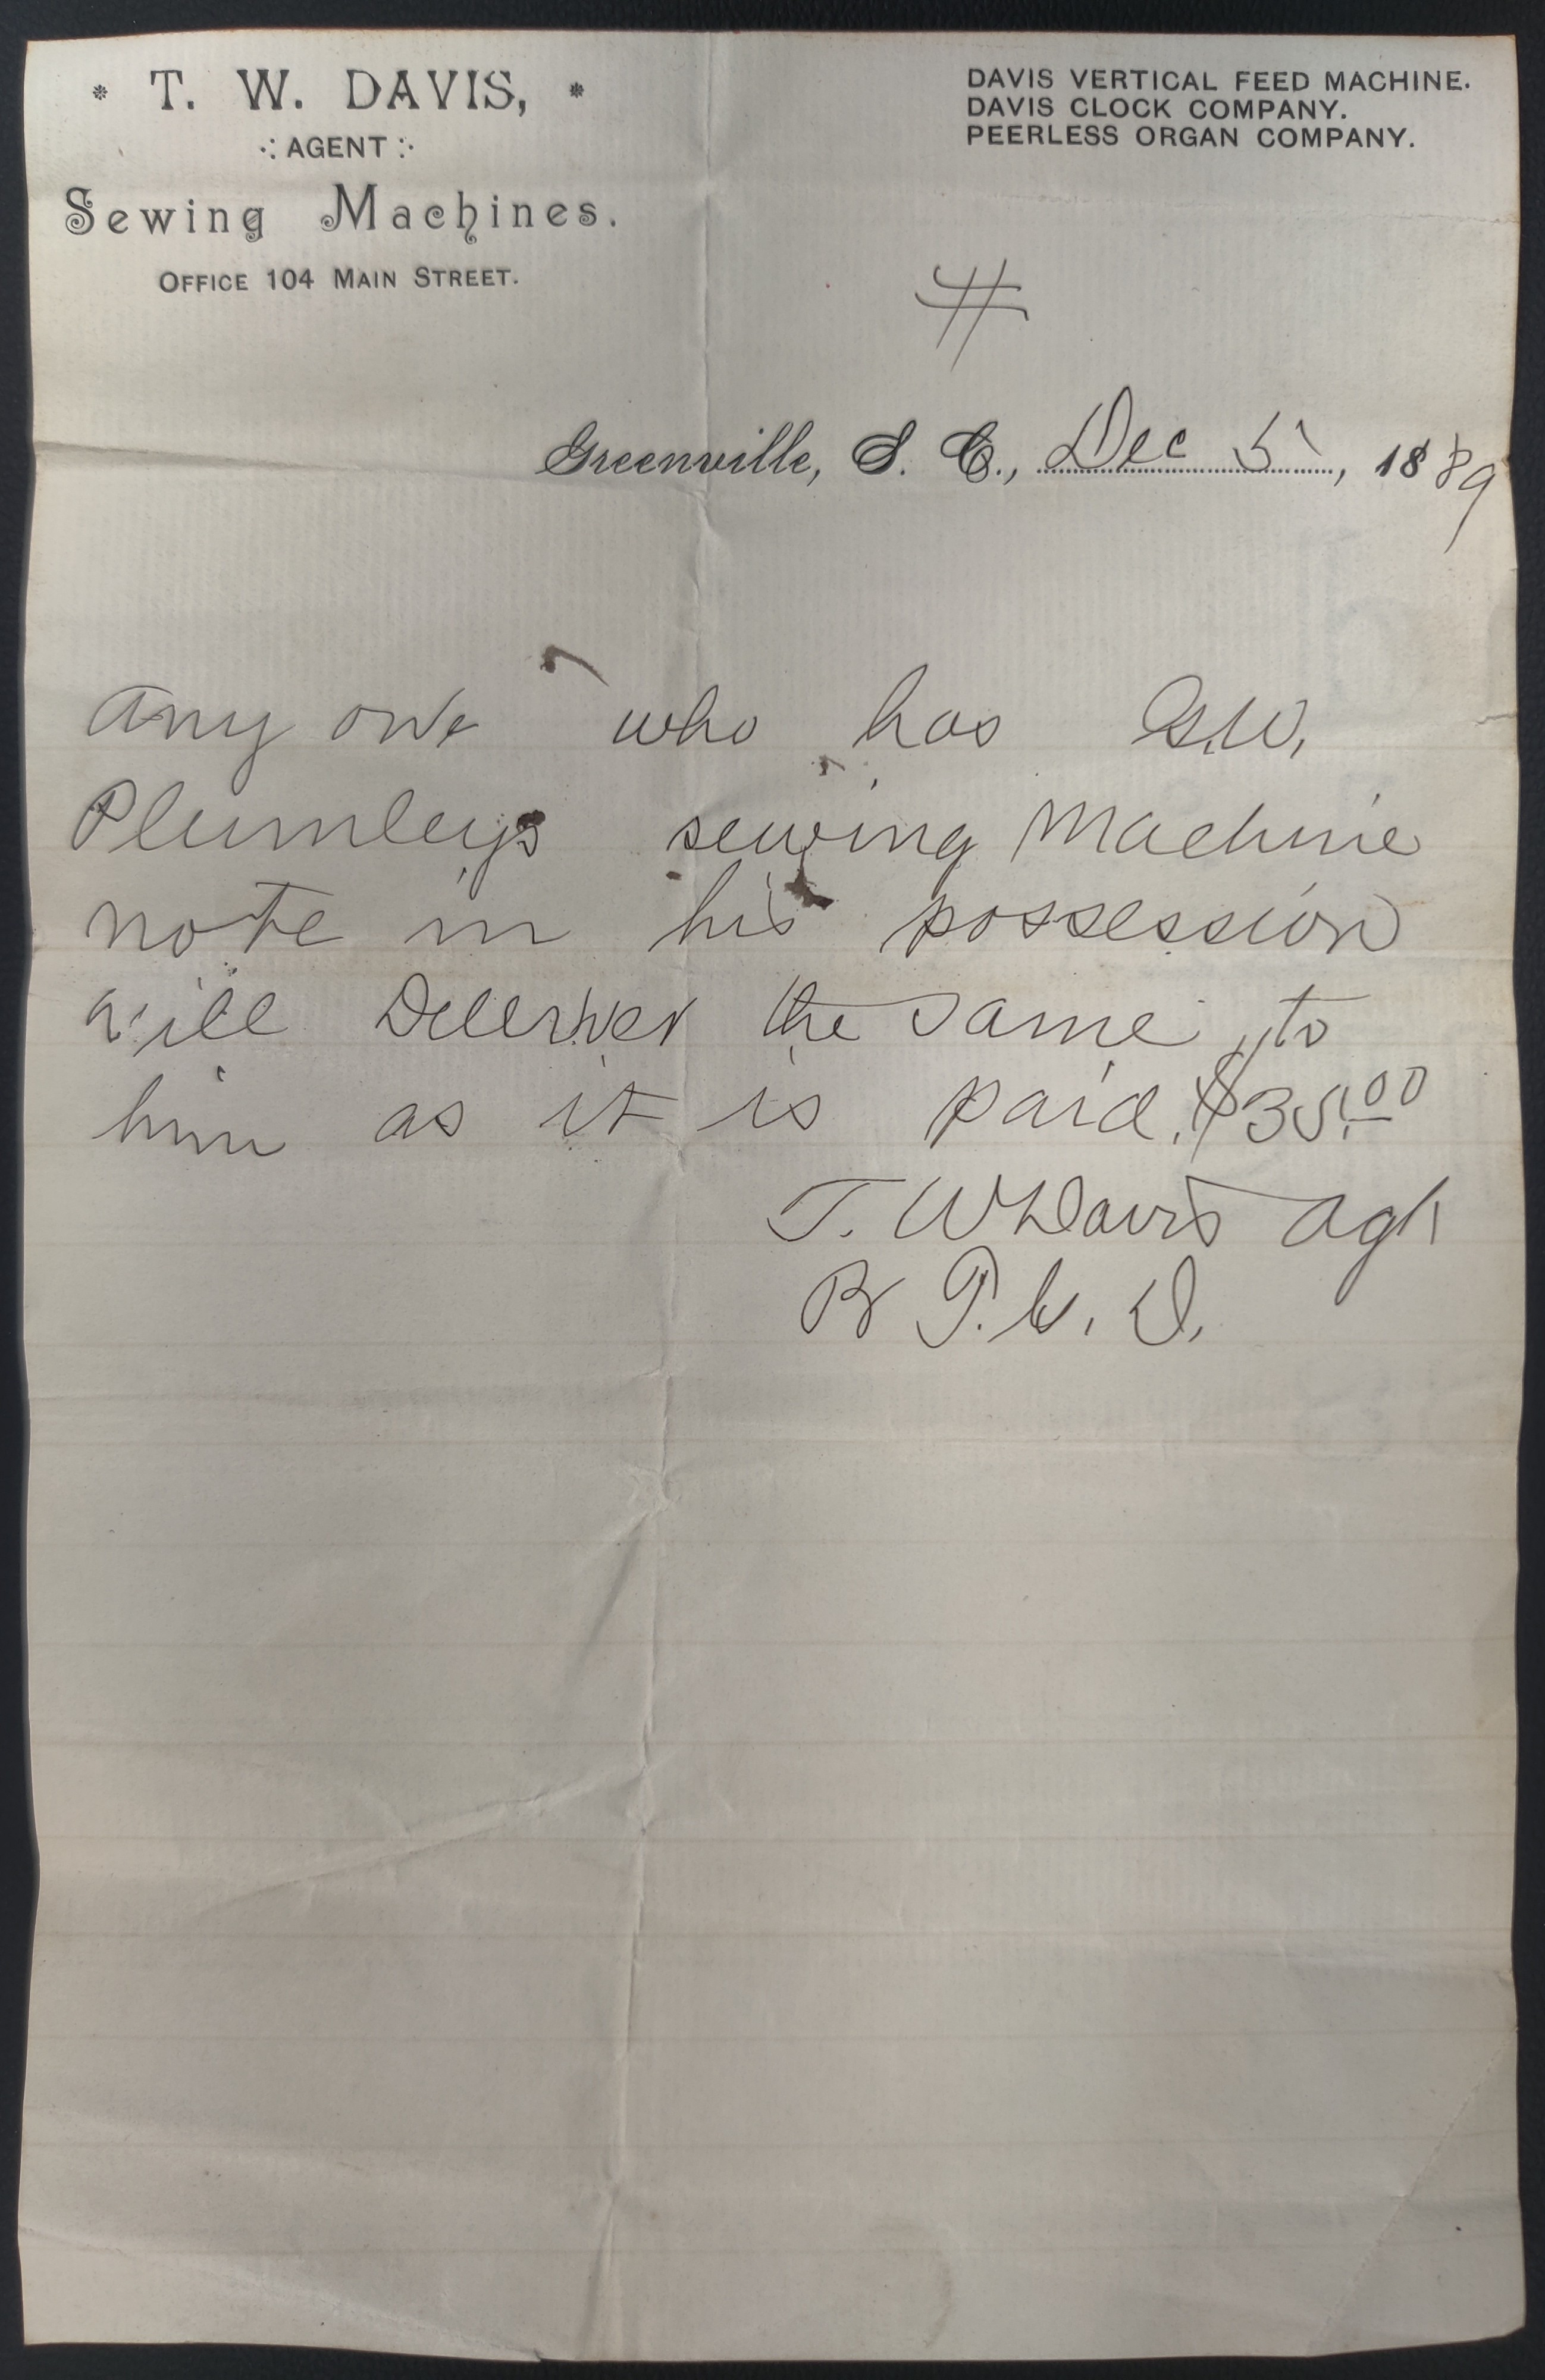 * T. W. DAVIS, *
AGENT
Sewing Machines.
OFFICE 104 MAIN STREET.
DAVIS VERTICAL FEED MACHINE.
DAVIS CLOCK COMPANY.
PEERLESS ORGAN COMPANY.
#
Greenville, S. C., Dec 5, 1889
any one who has G.W.
Plumleys sewing Machine
note in his possession
will Deleiver the same to
him as it is paid. $35.00
T. W Davis Agt
P. D.